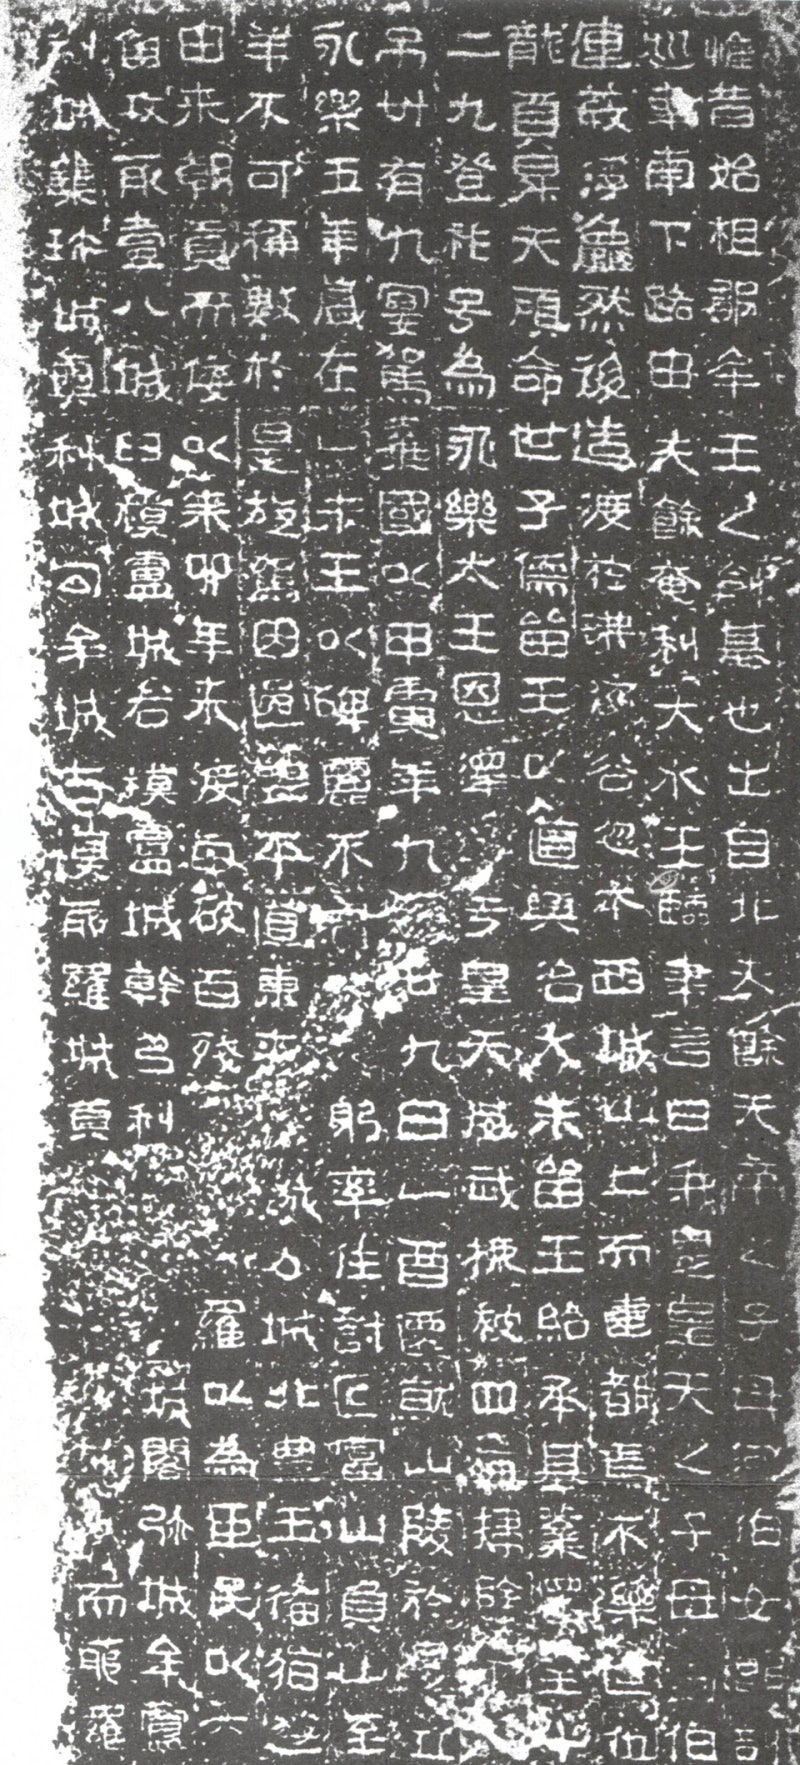 惟昔始祖鄒牟王之創基也出自北夫餘天帝之子母河伯女郎剖
巡車南下路由夫餘奄利大水王臨津言曰我是皇天之子母河伯
連葭浮龜然後造渡於沸流谷忽本西城山上而建都焉不樂世位
龍頁昇天顧命世子儒留王以道興治大朱留王紹承基業王
二九登祚号為永樂太王恩澤于皇天威武振被四海掃除
弔卅有九宴駕棄國以甲寅年九月廿九日乙酉遷就山陵於是立
永樂五年歲在乙未王以碑麗不躬率往討叵富山負山至
羊不可稱數於是旋駕因過襄平道東來城力城北豊五備猶遊
由來朝貢而倭以來卯年來渡每破百殘羅以為臣民以六
首攻取壹八城臼模盧城各模盧城幹弖利城閣弥城牟盧
利城集珍城奧利城勾牟城古模耶羅城頁城而耶羅